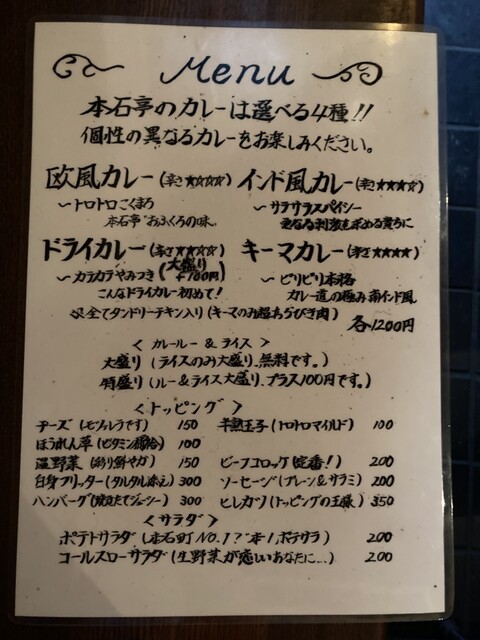 Menu
本石亭のカレーは選べる4種!!
個性の異なるカレーをお楽しみください。
欧風カレー(辛さ★☆☆☆) インド風カレー(辛さ★★★☆)
～トロトロこくまろ ～サラサラスパイシー
本石亭"おふくろの味" 更なる刺激を求める貴方に
ドライカレー(辛さ★★☆☆) キーマカレー(辛さ★★★★)
～カラカラやみつき(大盛り+100円) ～ビリビリ本格
こんなドライカレー初めて! カレー道の極み南インド風
全てタンドリーチキン入り(キーマのみ超あらびき肉)
各1200円
<カレールー&ライス>
大盛り(ライスのみ大盛り、無料です。)
特盛り(ルー&ライス大盛り、プラス100円です。)
<トッピング>
チーズ(モツァレラです) 150 半熟玉子(トロトロマイルド) 100
ほうれん草(ビタミン補給) 100
温野菜(彩り鮮やか) 150 ビーフコロッケ(定番!) 200
白身フリッター(タルタル添え) 300 ソーセージ(プレーン&サラミ) 200
ハンバーグ(焼きたてジューシー) 300 ヒレカツ(トッピングの王様) 350
<サラダ>
ポテトサラダ(本石町NO.1?ポテサラ) 200
コールスローサラダ(生野菜が恋しいあなたに...) 200